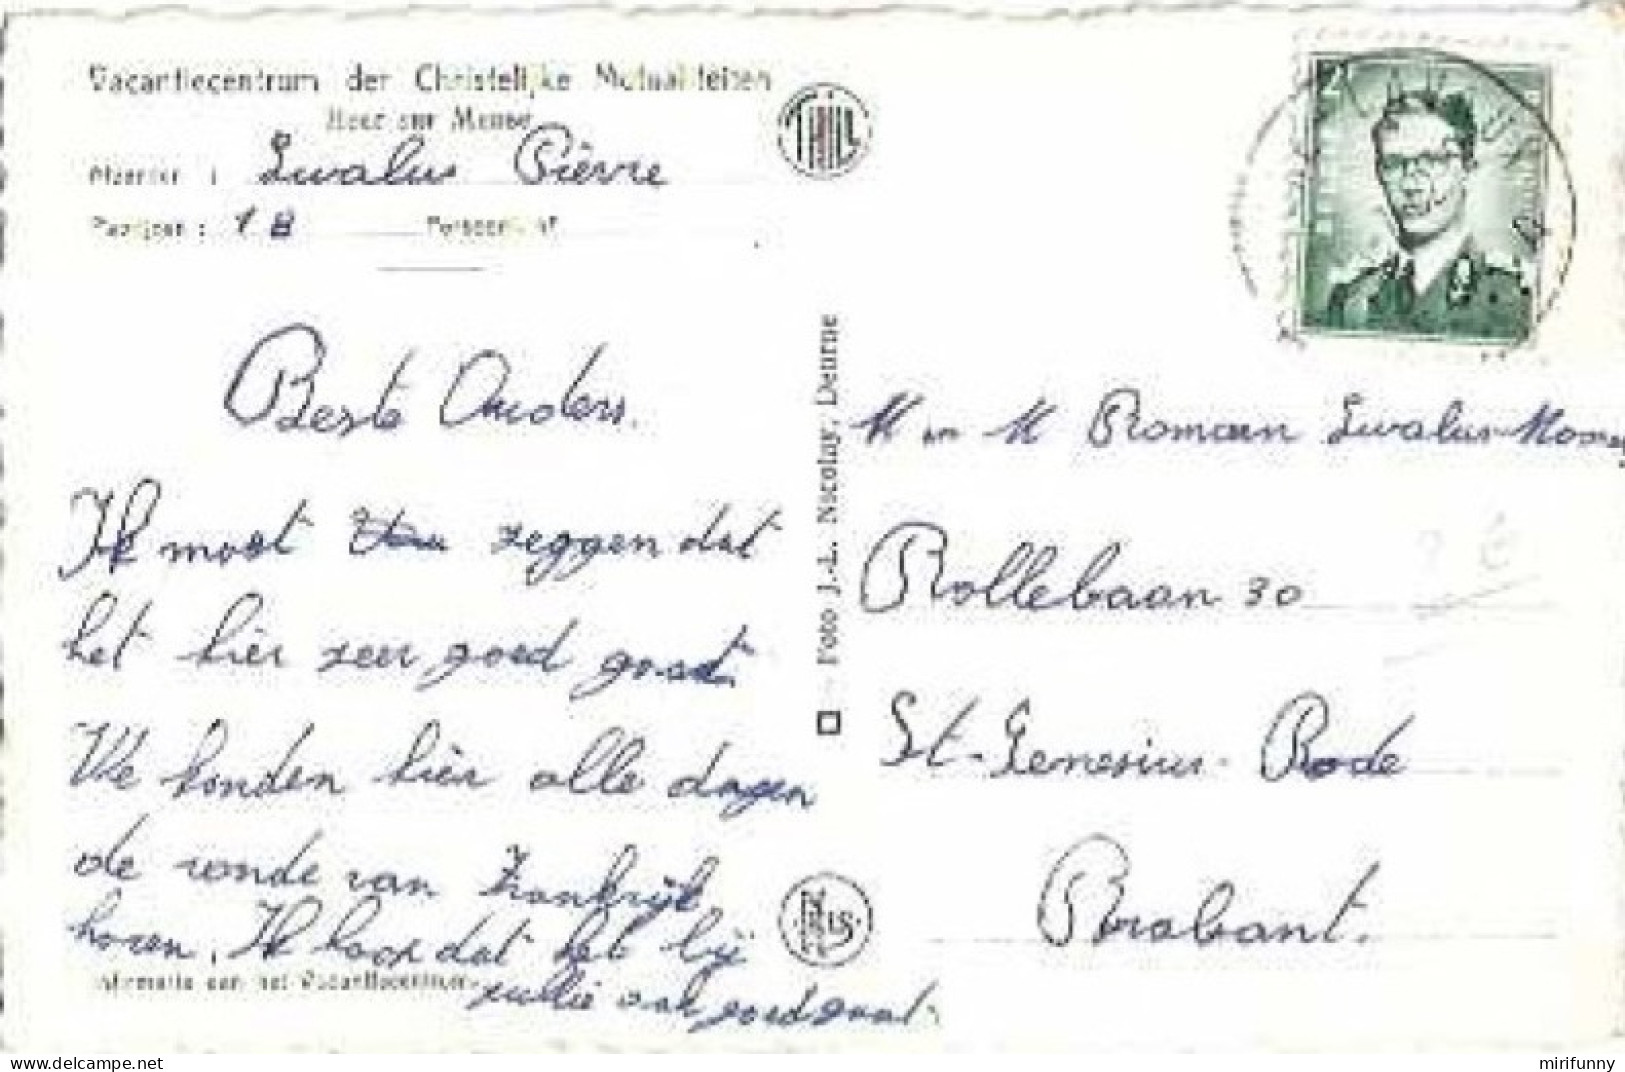 Vacantiecentrum der Christelijke Mutualiteiten
Heer sur Meuse
Afzender : Swalus Pierre
Paviljoen : 1 B Persoonlijk
Beste Ouders.
Ik moet zeggen dat
het hier zeer goed gaat.
We konden hier alle dagen
de ronde van Frankrijk
horen. Ik hoop dat het bij
jullie ook goed gaat.
Informatie aan het Vacantiecentrum
THILL
NELS
Foto J.-L. Nicolay, Deurne
M en M Romain Swalus-
Rollebaan 30
St-Genesius-Rode
Brabant.
mirifunny